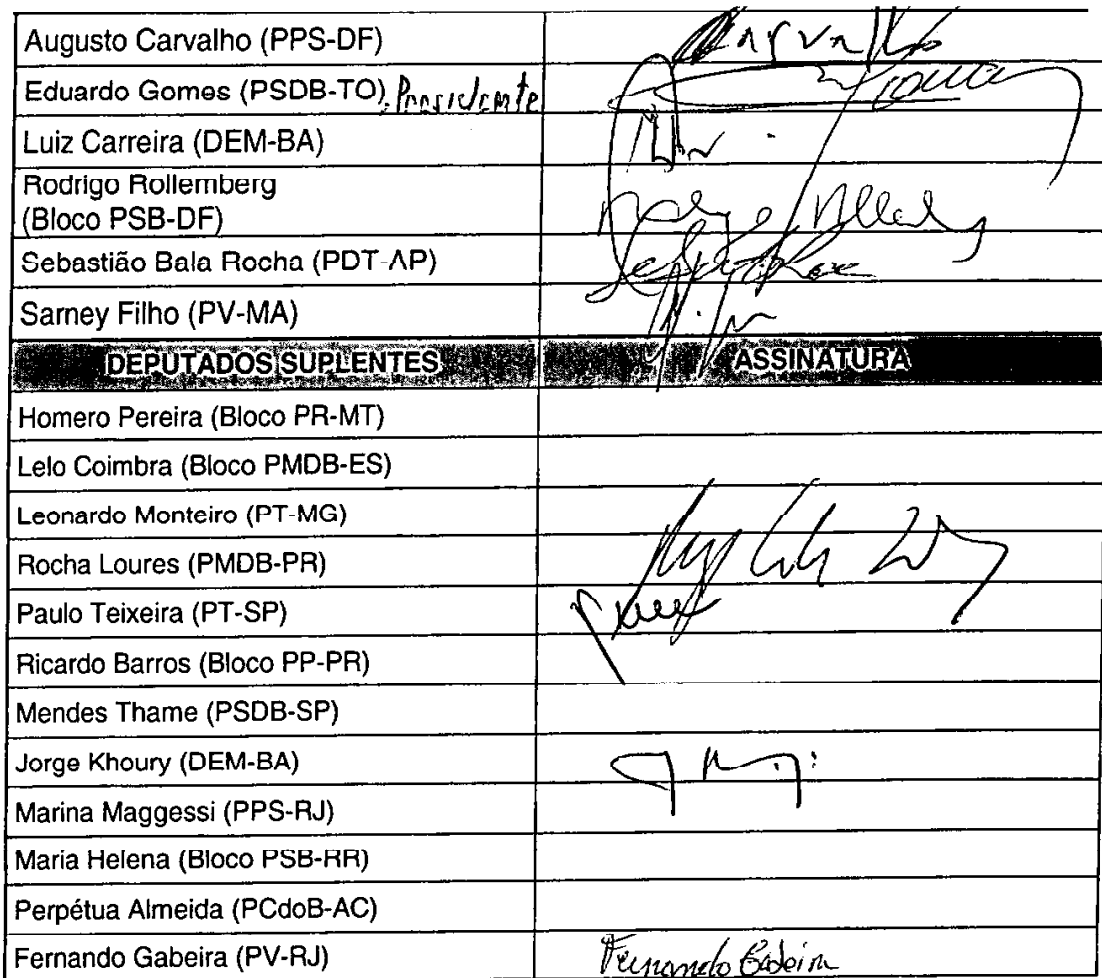 Augusto Carvalho (PPS-DF) Carvalho
Eduardo Gomes (PSDB-TO) Presidente
Luiz Carreira (DEM-BA)
Rodrigo Rollemberg
(Bloco PSB-DF)
Sebastião Bala Rocha (PDT-AP)
Sarney Filho (PV-MA)
DEPUTADOS SUPLENTES ASSINATURA
Homero Pereira (Bloco PR-MT)
Lelo Coimbra (Bloco PMDB-ES)
Leonardo Monteiro (PT-MG)
Rocha Loures (PMDB-PR)
Paulo Teixeira (PT-SP)
Ricardo Barros (Bloco PP-PR)
Mendes Thame (PSDB-SP)
Jorge Khoury (DEM-BA)
Marina Maggessi (PPS-RJ)
Maria Helena (Bloco PSB-RR)
Perpétua Almeida (PCdoB-AC)
Fernando Gabeira (PV-RJ) Fernando Gabeira